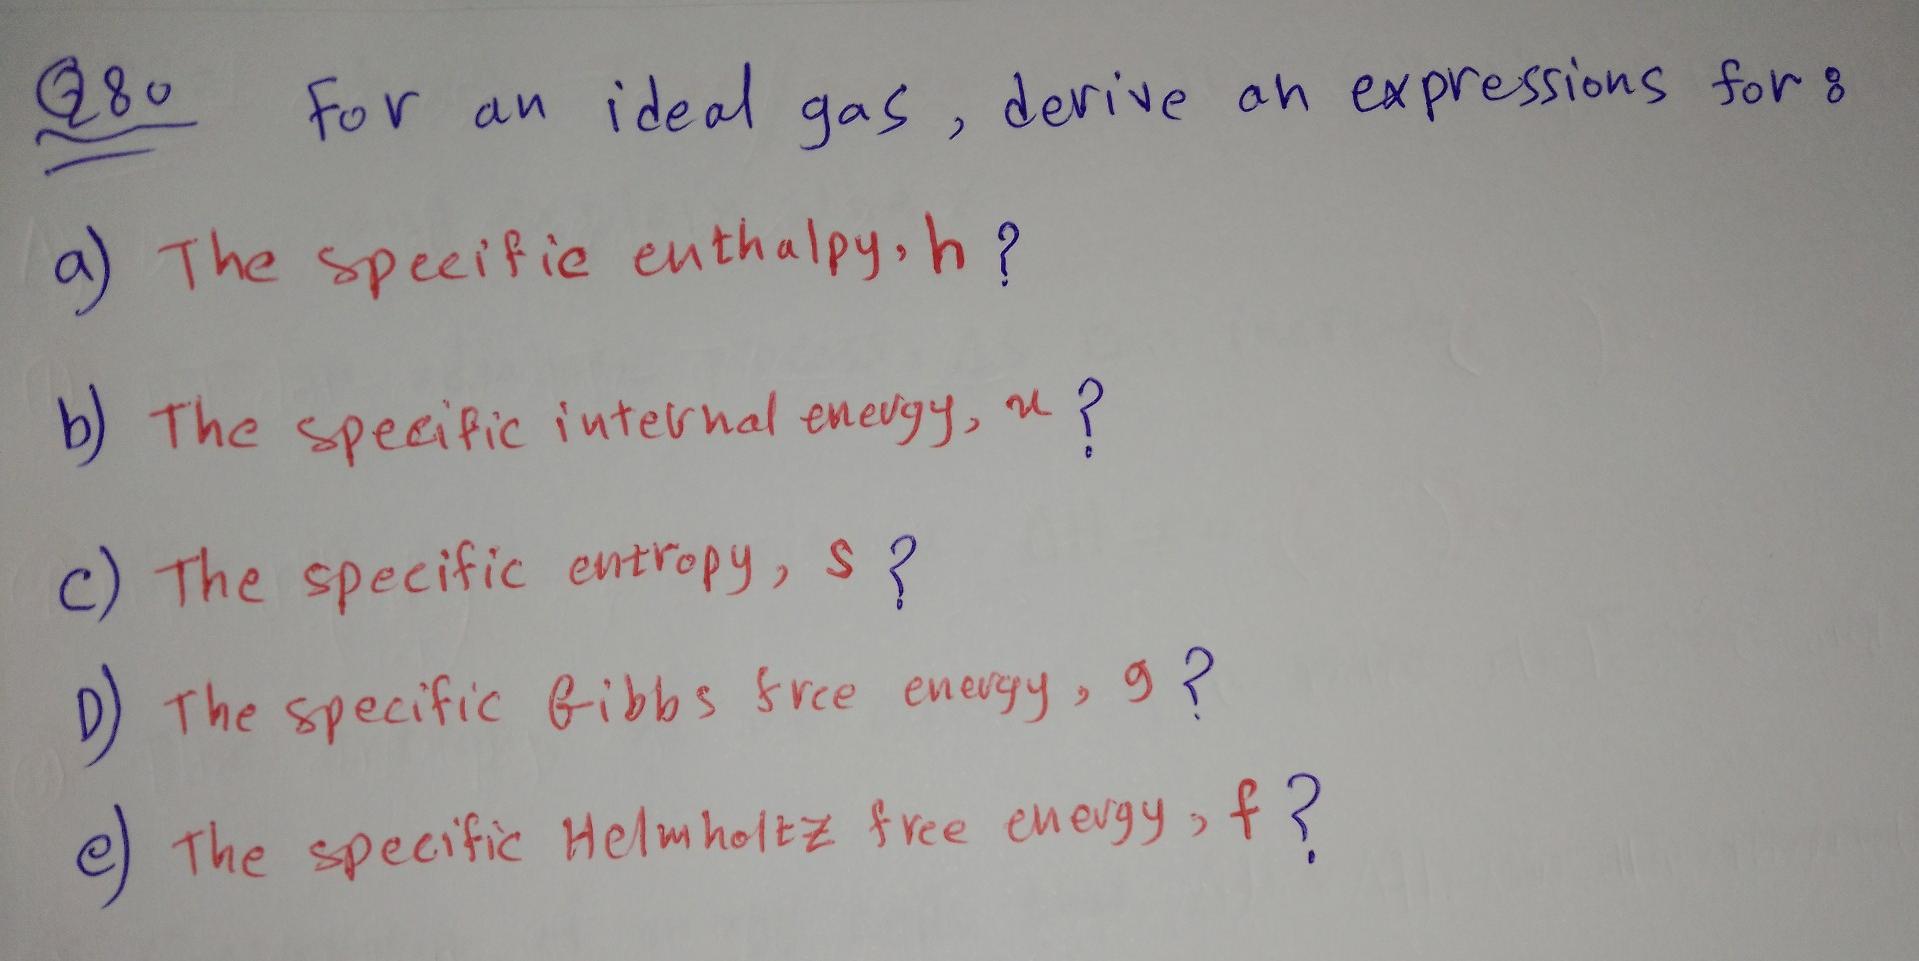 Q8o For an ideal gas, derive an expressions for :
a) The specific enthalpy, h ?
b) The specific internal energy, u ?
c) The specific entropy, s ?
D) The specific Gibbs free energy, g ?
e) The specific Helmholtz free energy, f ?